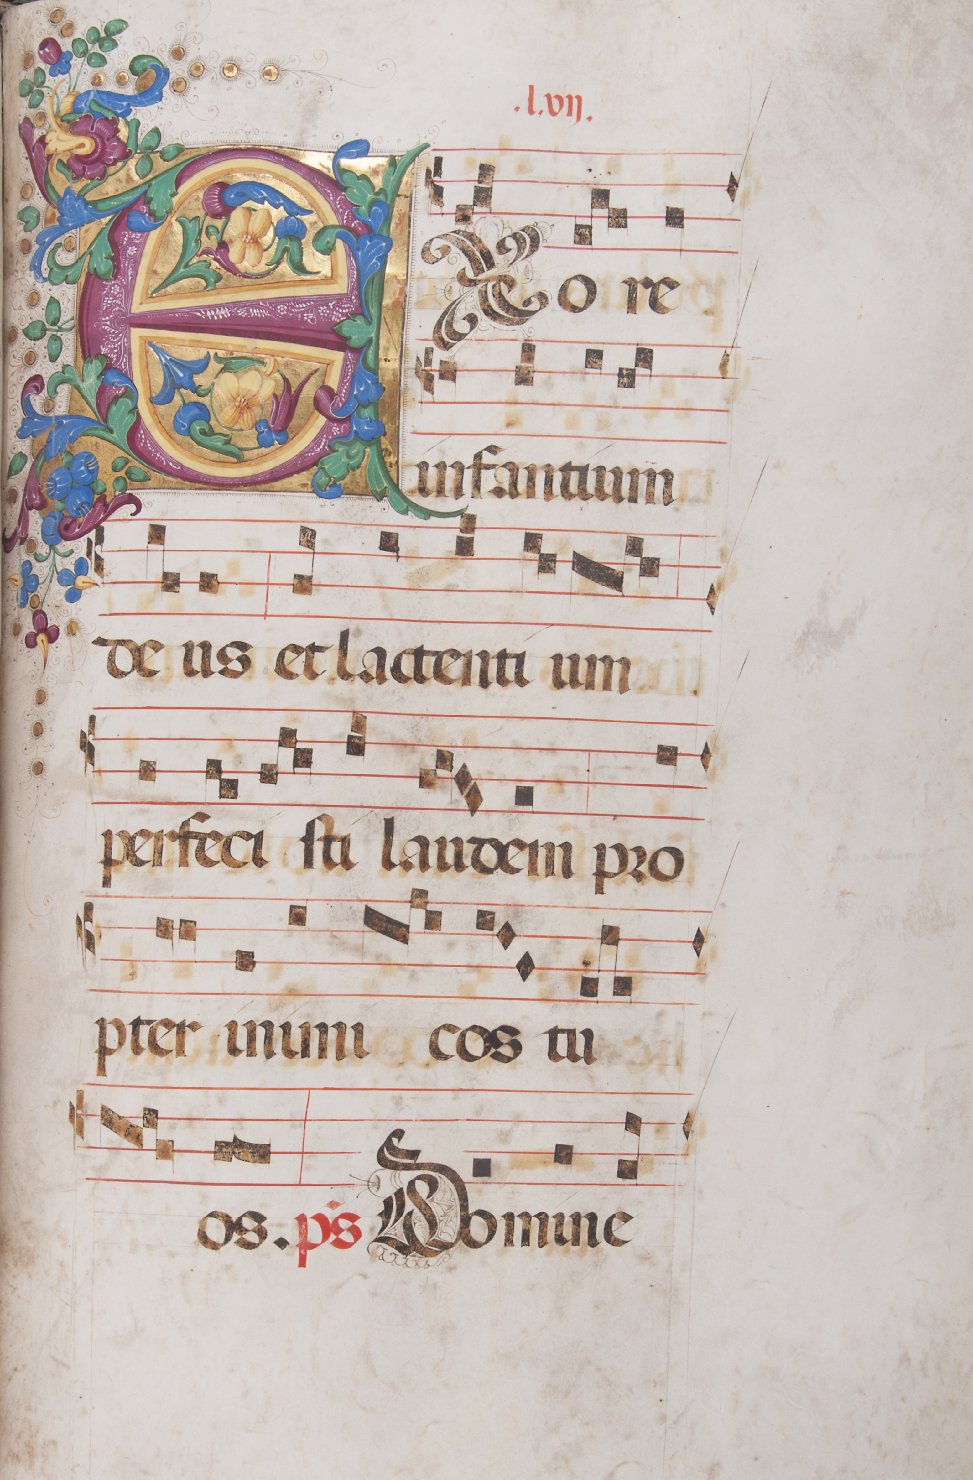 .l.vij.
EX ore
infantium
deus et lactentium
perfecisti laudem pro
pter inimicos tu
os. ps Domine